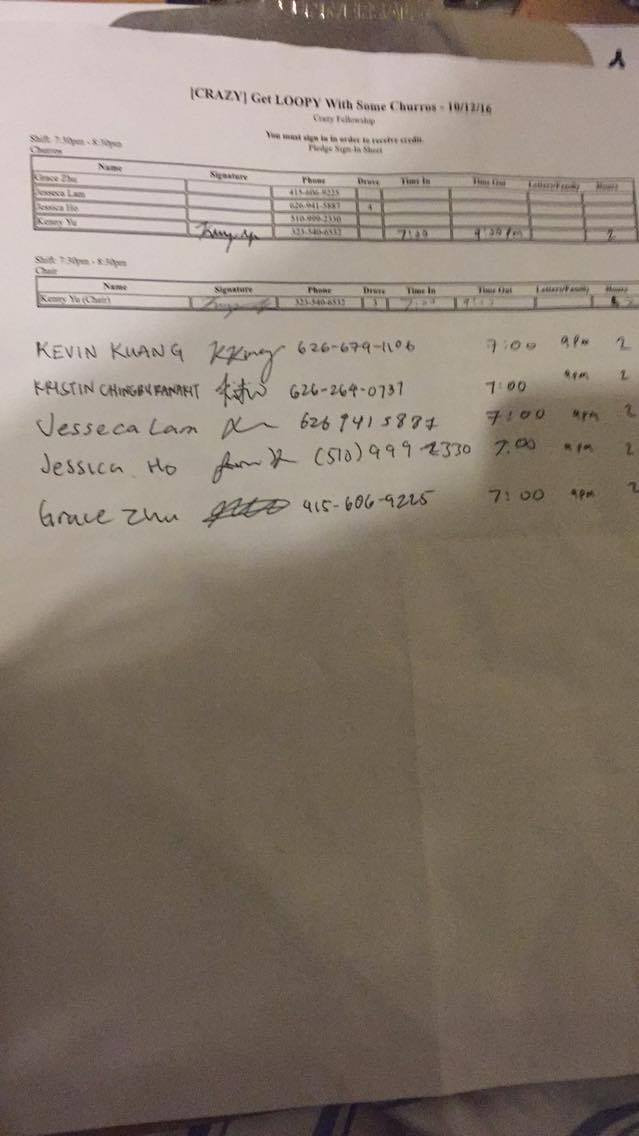 [CRAZY] Get LOOPY With Some Churros - 10/12/16
Crazy Fellowship
You must sign in in order to receive credit.
Pledge Sign-In Sheet
Shift: 7:30pm - 8:30pm
Churros
Name Signature Phone Drove Time In Time Out Lottery/Family Hours
Grace Zhu 415-606-9225
Jesseca Lam 626-941-5887 4
Jessica Ho 510-999-2330
Kenny Yu 323-540-6532 7:00 2
Shift: 7:30pm - 8:30pm
Chair
Name Signature Phone Drove Time In Time Out Lottery/Family Hours
Kenny Yu (Chair) 323-540-6532 3
KEVIN KUANG KKuang 626-679-1106 7:00 9PM 2
KRISTIN 626-264-0737 7:00 9PM 2
Jesseca Lam 626 941 5887 7:00 9pm 2
Jessica Ho (510) 999-2330 7:00 9PM 2
Grace Zhu 415-606-9225 7:00 9pm 2